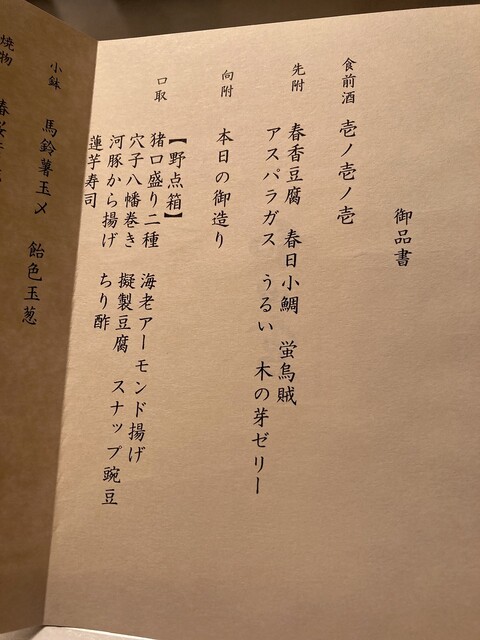 御品書
食前酒 壱ノ壱ノ壱
先附 春香豆腐 春日小鯛 蛍烏賊
アスパラガス うるい 木の芽ゼリー
向附 本日の御造り
口取 【野点箱】
猪口盛り二種 海老アーモンド揚げ
穴子八幡巻き 擬製豆腐 スナップ豌豆
河豚から揚げ ちり酢
蓮芋寿司
小鉢 馬鈴薯玉〆 飴色玉葱
焼物